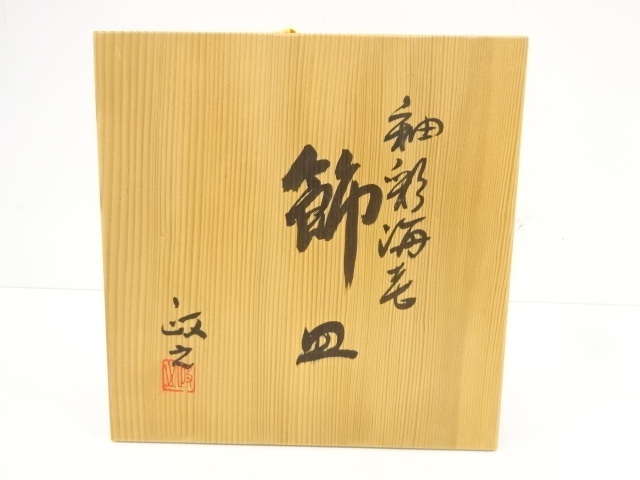 釉彩海老
飾皿
政之